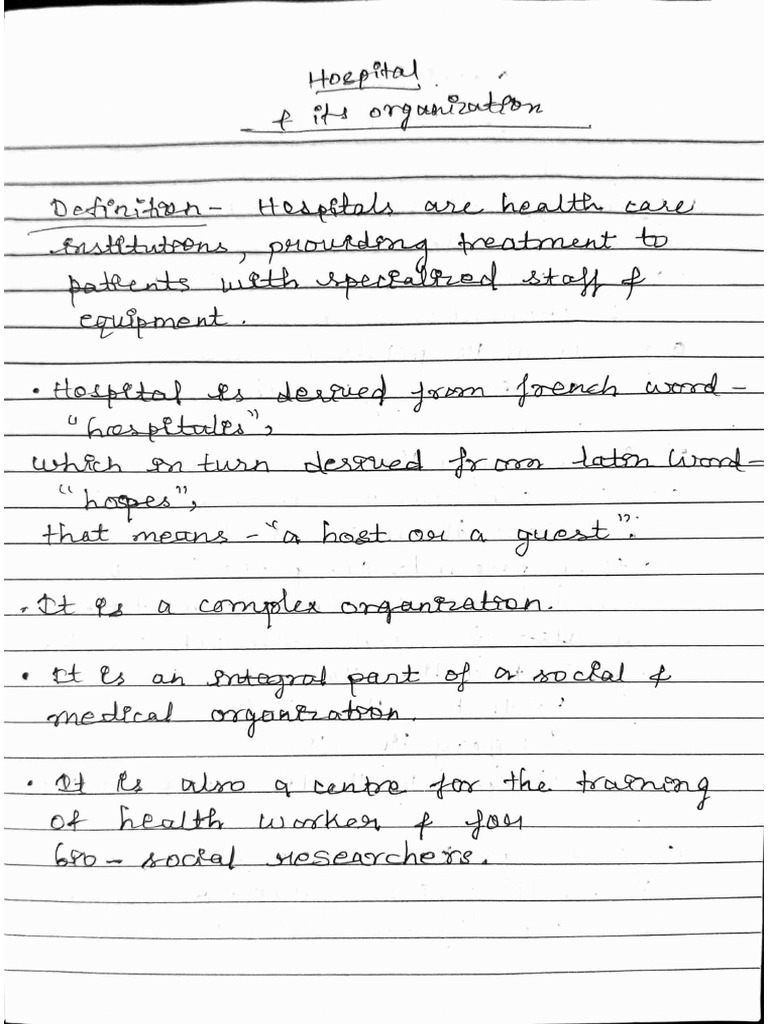 Hospital
& its organization
Definition - Hospitals are health care
institutions, providing treatment to
patients with specialized staff &
equipment.
• Hospital is derived from french word -
"hospitales",
which in turn derived from latin word -
"hospes",
that means - "a host or a guest".
• It is a complex organization.
• It is an integral part of a social &
medical organization.
• It is also a centre for the training
of health worker & for
bio - social researchers.